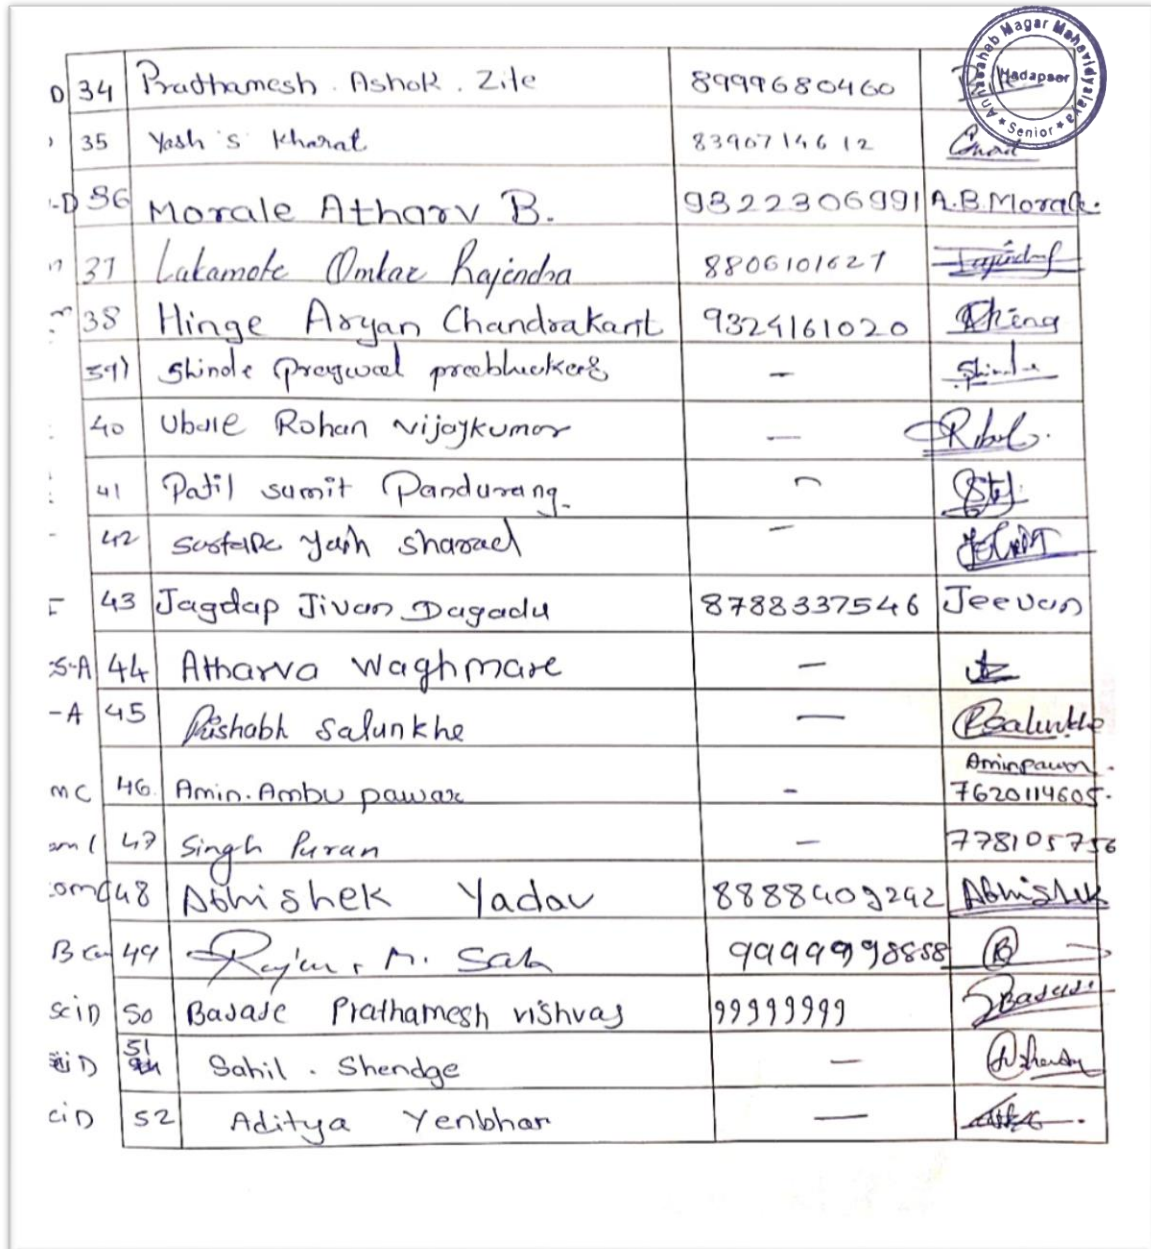 Annasaheb Magar Mahavidyalaya
Hadapsar
★ Senior ★
D 34 Prathamesh . Ashok . Zite 8999680460
35 Yash S Kharat 8390714612
-D 36 Morale Atharv B. 9322306991 A.B.Morale.
37 Lakamate Omkar Rajendra 8806101627
38 Hinge Aryan Chandrakant 9324161020 Rhing
39) Shinde –
40 Ubale Rohan vijaykumar –
41 Patil sumit Pandurang.
42 Yash sharad –
43 Jagdap Jivan Dagadu 8788337546 Jeevan
S-A 44 Atharva Waghmare –
-A 45 Rishabh Salunkhe – RSalunkhe
mc 46. Amin.Ambu pawar - Aminpawar.
7620114605.
47 Singh Puran – 778105756
48 Abhishek Yadav 8888409242 Abhishek
49 9999998888
SciD 50 Prathamesh vishvas 99999999
D 51 Sahil . Shendge –
ciD 52 Aditya Yenbhar –